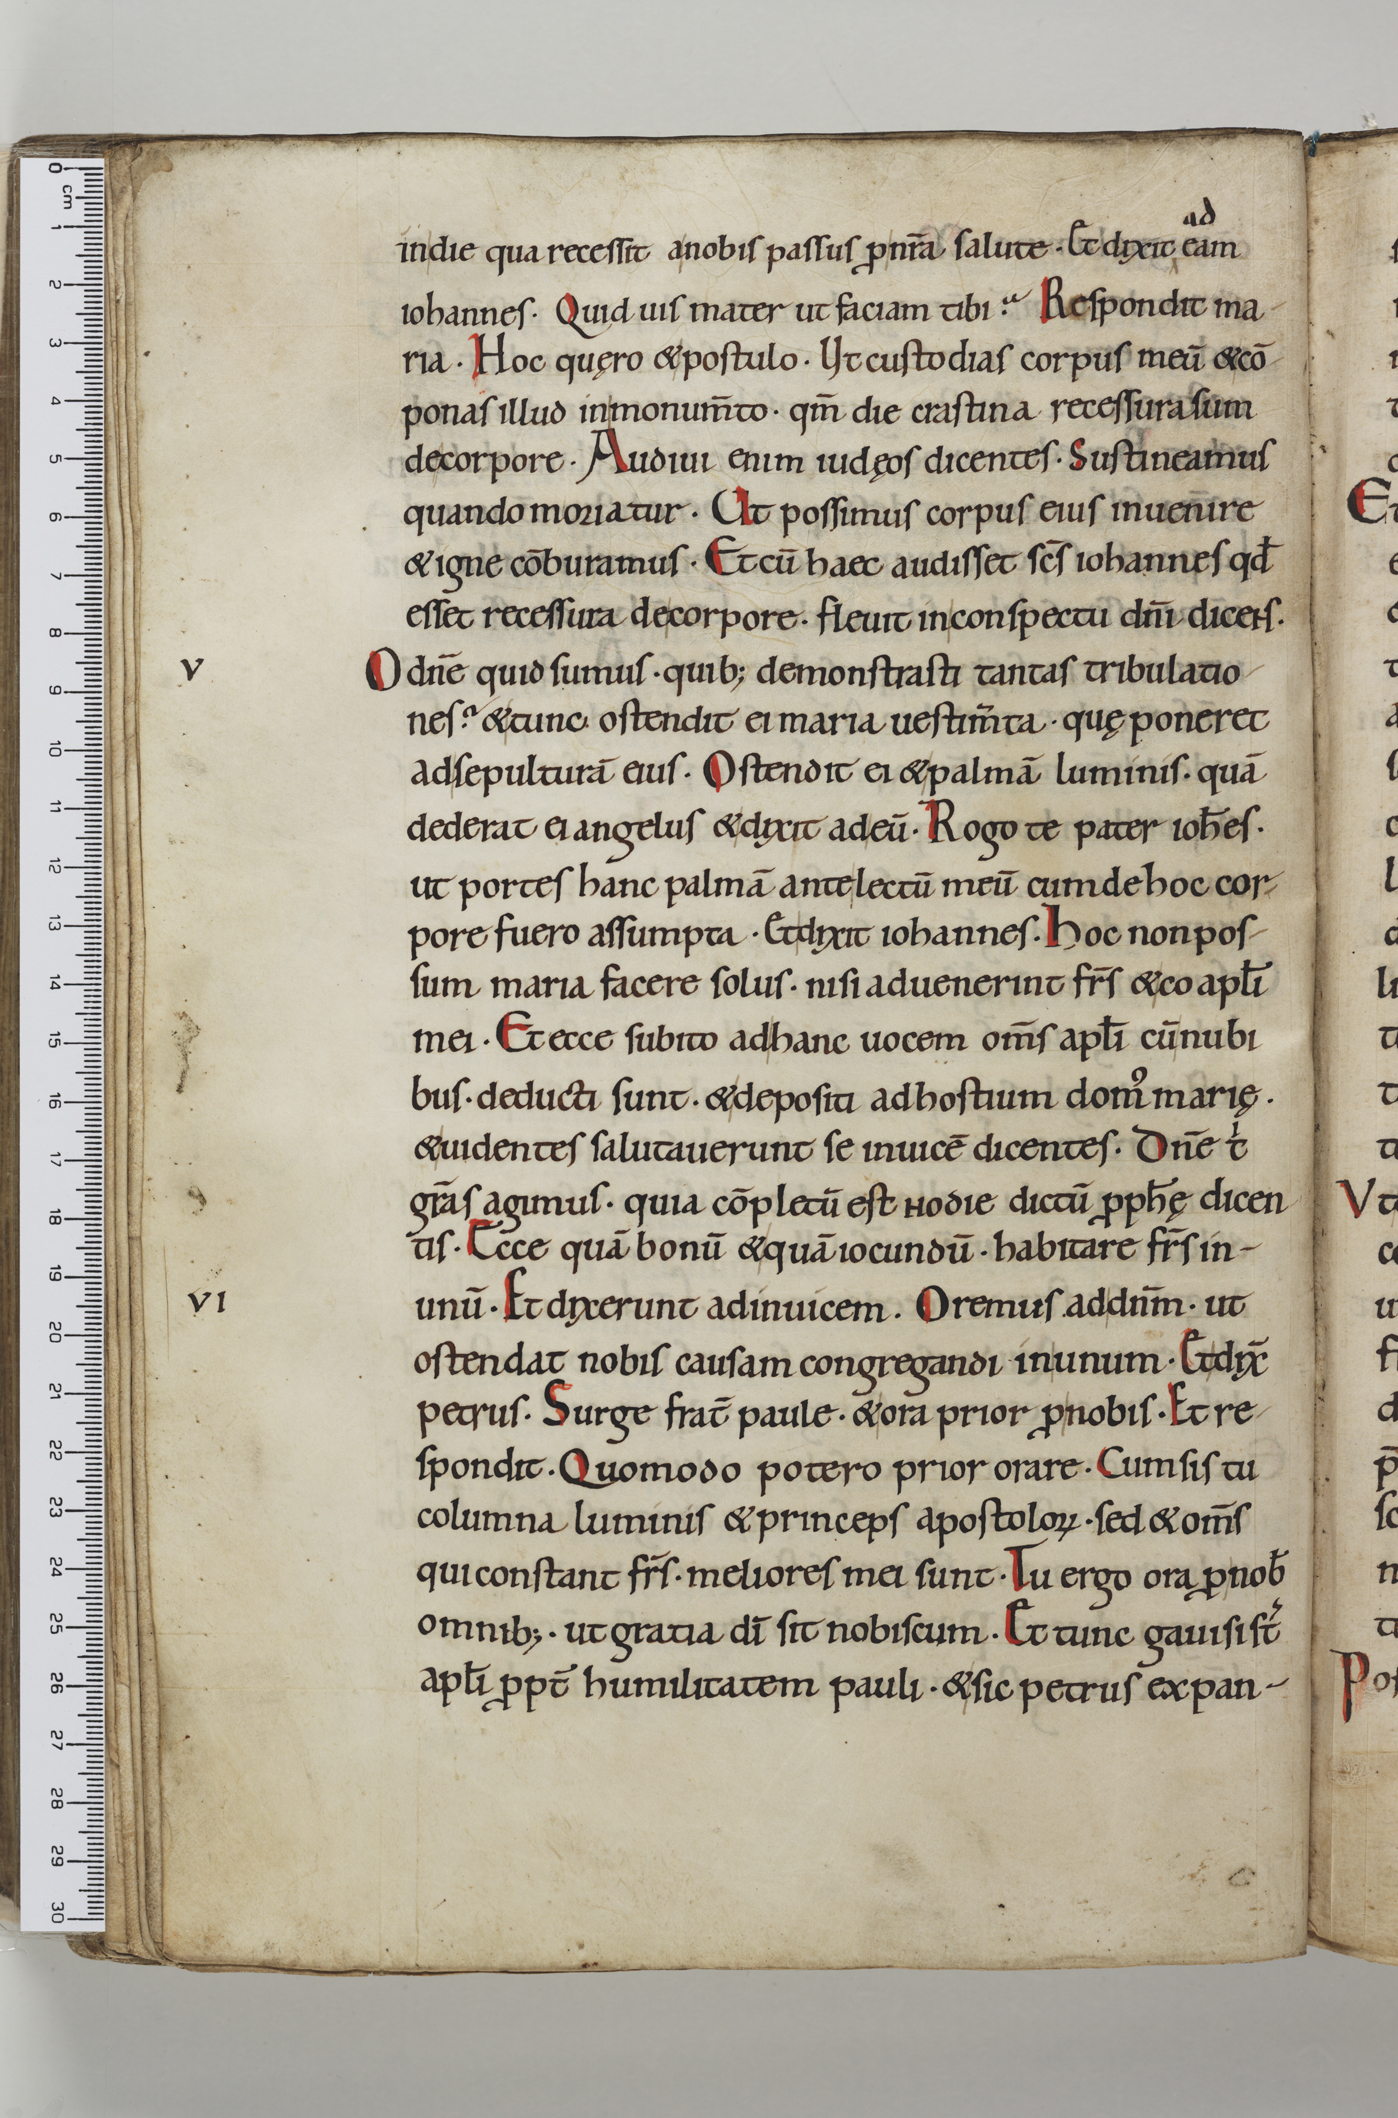 indie qua recessit anobis passus ꝓnr̄a salute · Et dixit ad eam
iohannes · Quid uis mater ut faciam tibi? Respondit ma-
ria · Hoc quęro &postulo · Ut custodias corpus meū &cō-
ponas illud inmonum̄to · qm̄ die crastina recessura sum
decorpore · Audiui enim iudęos dicentes · Sustineamus
quando moriatur · Ut possimus corpus eius inuenire
&igne cōburamus · Et cū haec audisset sc̄s iohannes qđ
esset recessura decorpore · fleuit inconspectu dn̄i dicens ·
V
O dn̄e quid sumus · quib; demonstrasti tantas tribulatio-
nes? &tunc ostendit ei maria uestim̄ta · quę poneret
adsepulturā eius · Ostendit ei &palmā luminis · quā
dederat ei angelus &dixit adeū · Rogo te pater ioh̄es ·
ut portes hanc palmā antelectū meū cum dehoc cor-
pore fuero assumpta · Et dixit iohannes · Hoc non pos-
sum maria facere solus · nisi aduenerint fr̄s &co apłi
mei · Et ecce subito adhanc uocem om̄s apłi cū nubi
bus · deducti sunt · &depositi adhostium dom᷒ marię ·
&uidentes salutauerunt se inuicē dicentes · Dn̄e t̄
gr̄as agimus · quia cōpletū est hodie dictū ꝓph̄ę dicen
tis · Ecce quā bonū &quā iocundū · habitare fr̄s in-
VI
unū · Et dixerunt adinuicem · Oremus addn̄m · ut
ostendat nobis causam congregandi inunum · Et dix̄
petrus · Surge frat̄ paule · &ora prior ꝓnobis · Et re-
spondit · Quomodo potero prior orare · Cum sis tu
columna luminis &princeps apostoloꝝ · sed &om̄s
qui constant fr̄s · meliores mei sunt · Tu ergo ora ꝓnob̄
omnib; · ut gratia dī sit nobiscum · Et tunc gauisi st̄
apłi ꝓpt̄ humilitatem pauli · &sic petrus expan-